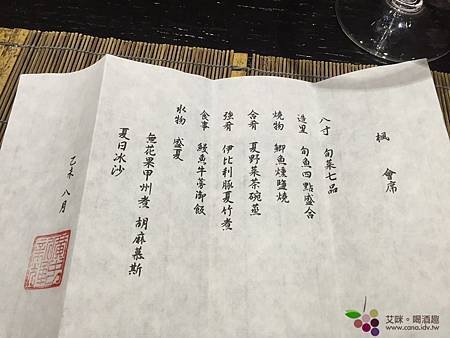 楓 會席
八寸 旬菜七品
造里 旬魚四點盛合
燒物 鰤魚燻鹽燒
合肴 夏野菜茶碗蒸
強肴 伊比利豚夏竹煮
食事 鰻魚牛蒡御飯
水物 盛夏
無花果甲州煮 胡麻慕斯
夏日冰沙
乙未 八月
艾咪。喝酒趣
www.cana.idv.tw